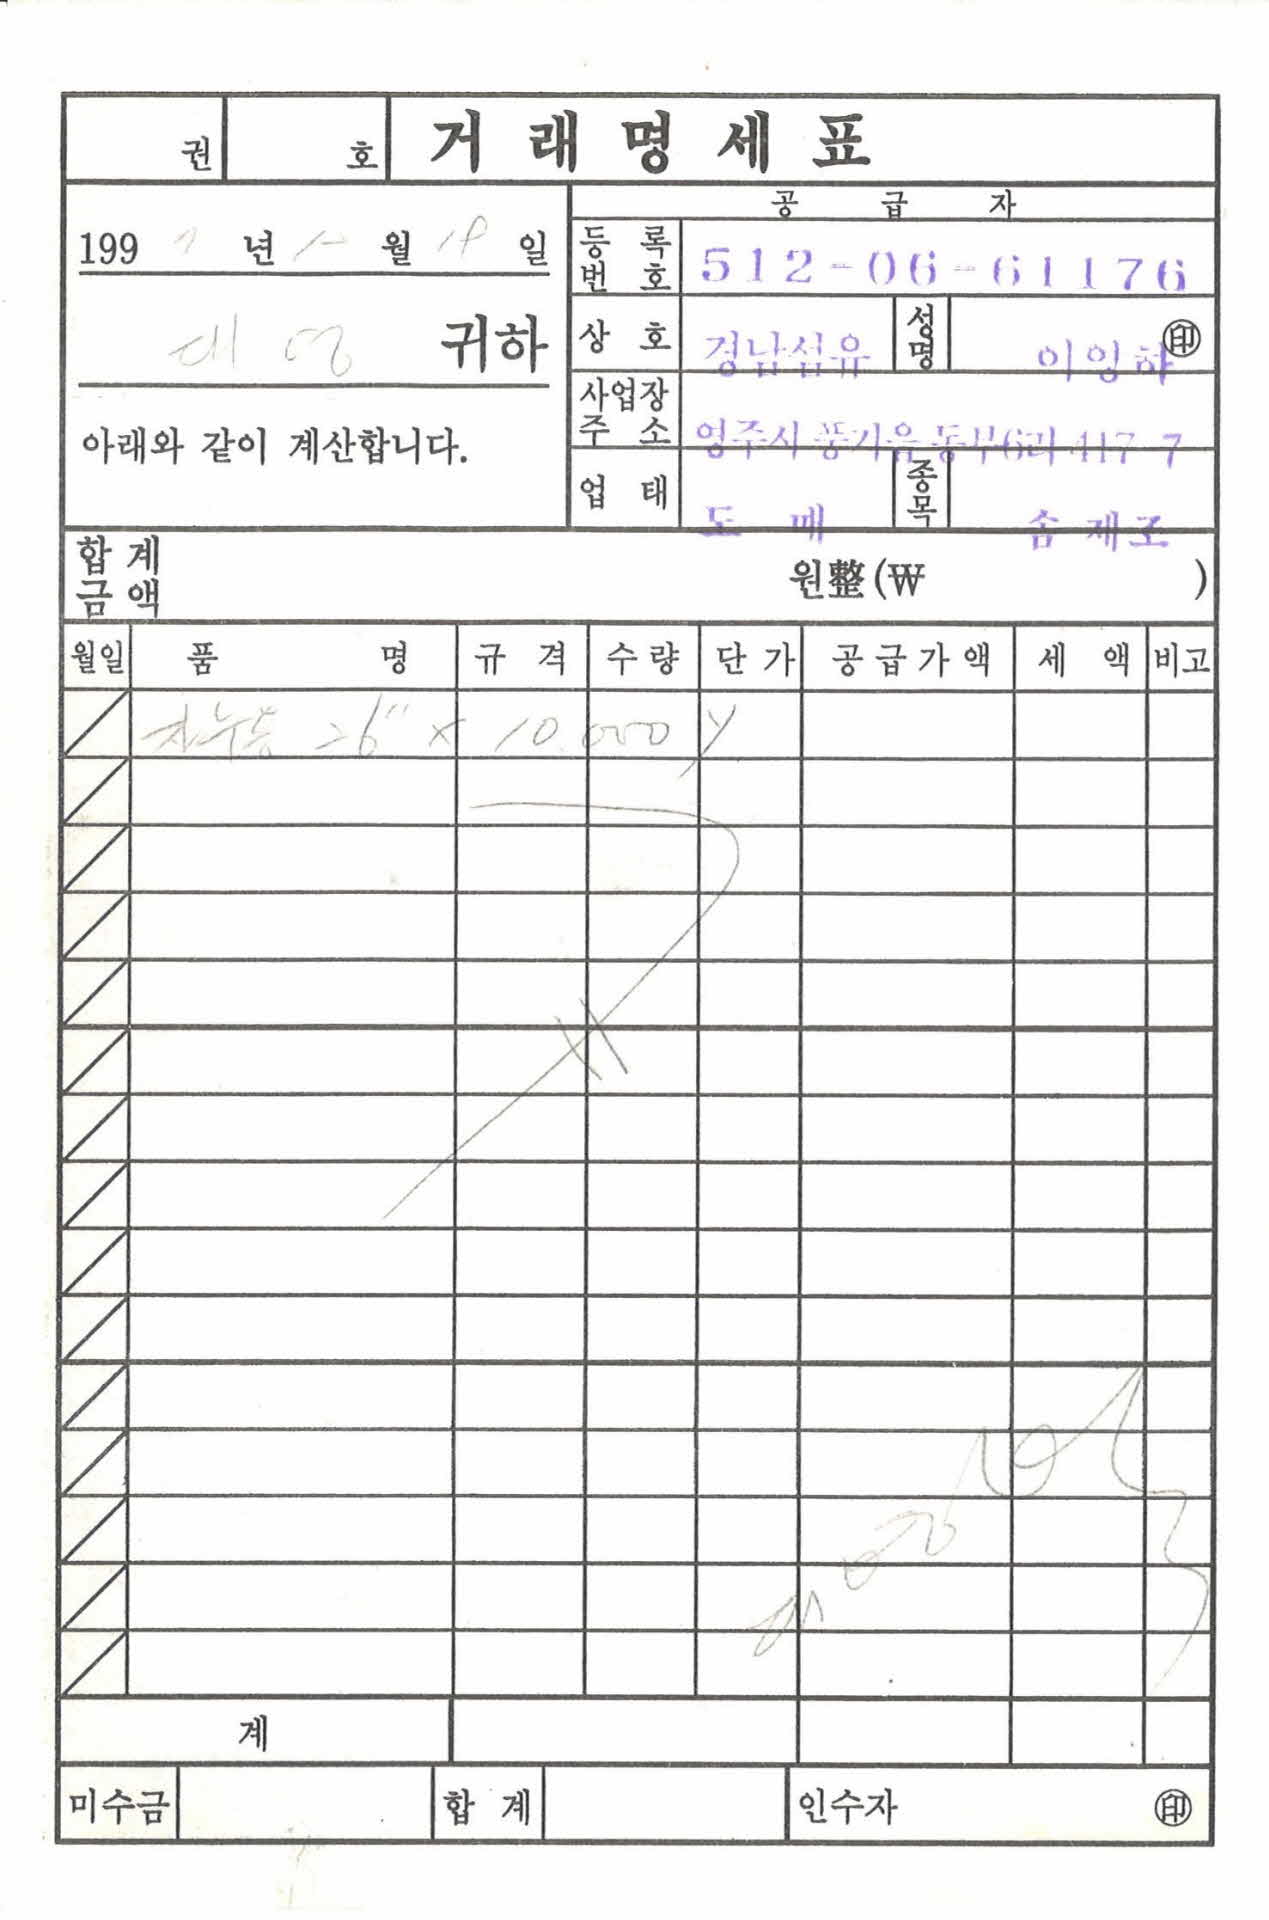 권 호 거래명세표
공급자
1997년 12월 18일
등록번호 512-06-61176
대영 귀하
상호 경남섬유 성명 이잉하 ㊞
사업장주소 영주시 풍기읍 동부6리 417-7
아래와 같이 계산합니다.
업태 도매 종목 솜 제조
합계금액 원整(₩ )
월일 품명 규격 수량 단가 공급가액 세액 비고
26" x 10.000 y
계
미수금 합계 인수자 ㊞